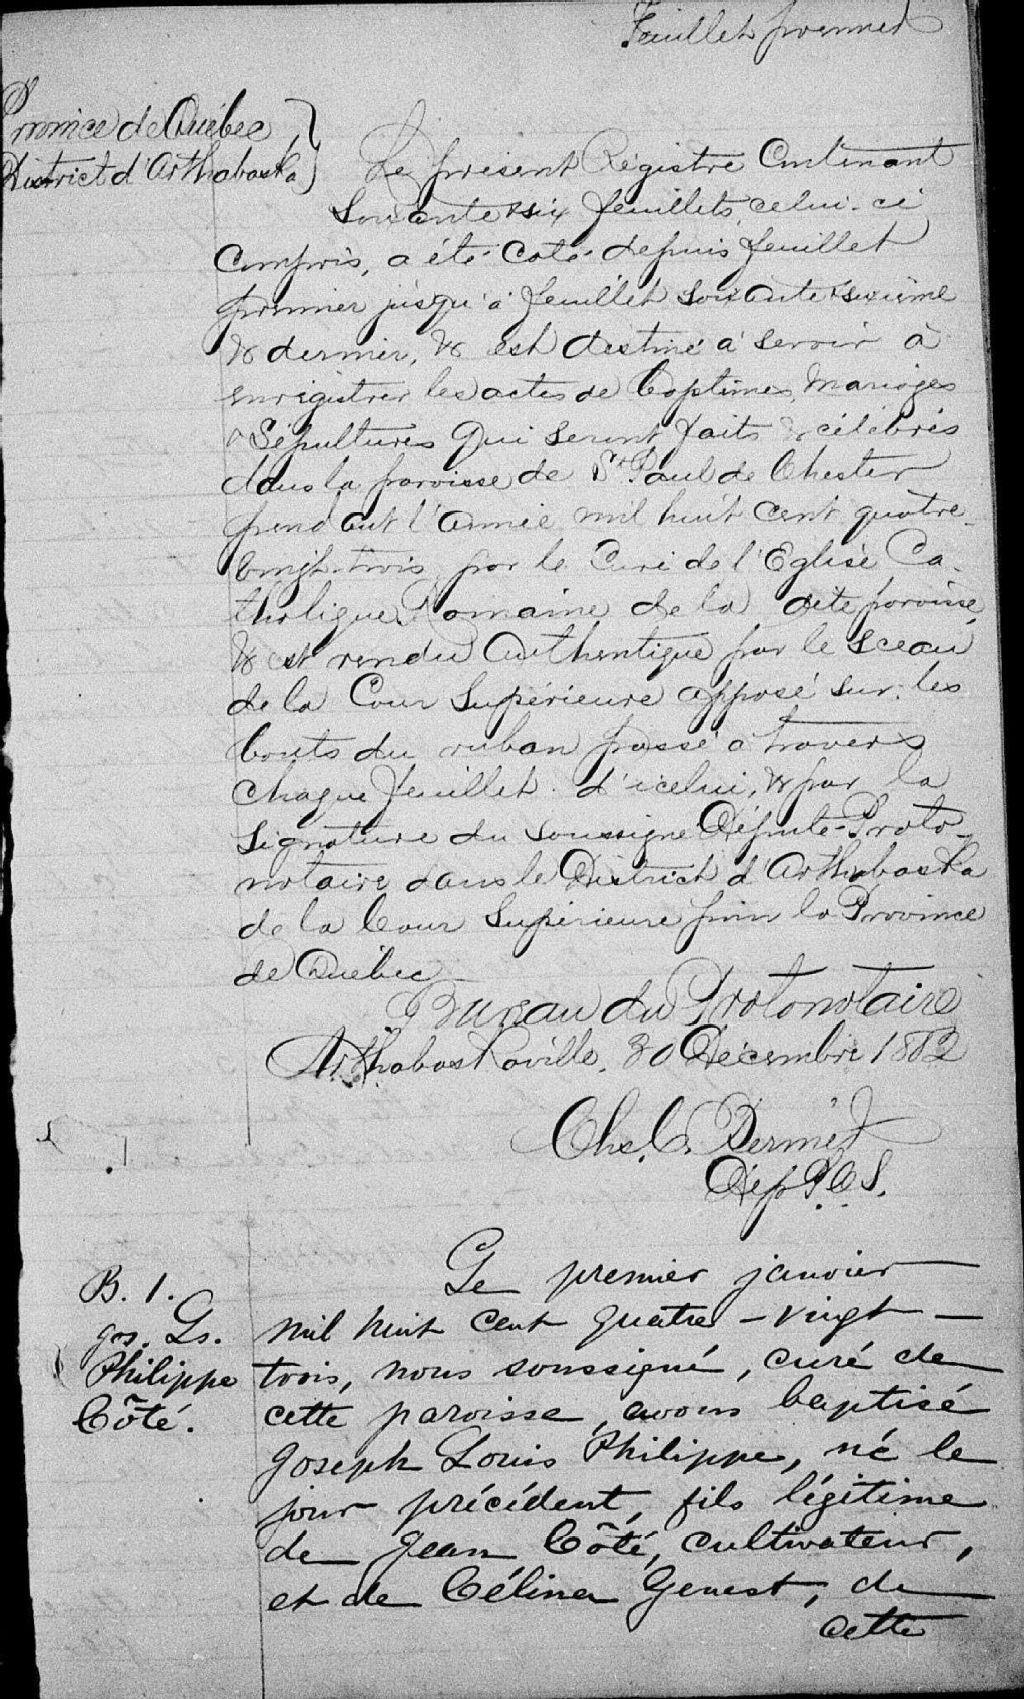 Feuillet premier
Province de Québec
District d'Arthabaska
Le présent Régistre Contenant
Soixante & six feuillets, celui-ci
Compris, a été coté depuis feuillet
premier jusqu'à feuillet soixante & sixième
& dernier, & est destiné à servir à
enrégistrer les actes de Baptêmes, Mariages
& Sépultures qui seront faits & célébrés
dans la paroisse de St Paul de Chester
pendant l'année mil huit cent quatre-
vingt-trois par le Curé de l'Eglise Ca-
tholique Romaine de la dite paroisse,
& est rendu authentique par le sceau
de la Cour Supérieure apposé sur les
bouts du ruban passé à travers
chaque feuillet d'icelui, & par la
signature du soussigné Député-Proto-
notaire dans le District d'Arthabaska
de la Cour Supérieure pour la Province
de Québec
Bureau du Protonotaire
Arthabaskaville, 30 Décembre 1882
Chs. C. Dép. P.C.S.
B. 1.
Js. Ls.
Philippe
Côté.
Le premier janvier
mil huit cent quatre-vingt-
trois, nous soussigné, curé de
cette paroisse, avons baptisé
Joseph Louis Philippe, né le
jour précédent, fils légitime
de Jean Côté, cultivateur,
et de Célina Genest, de
cette